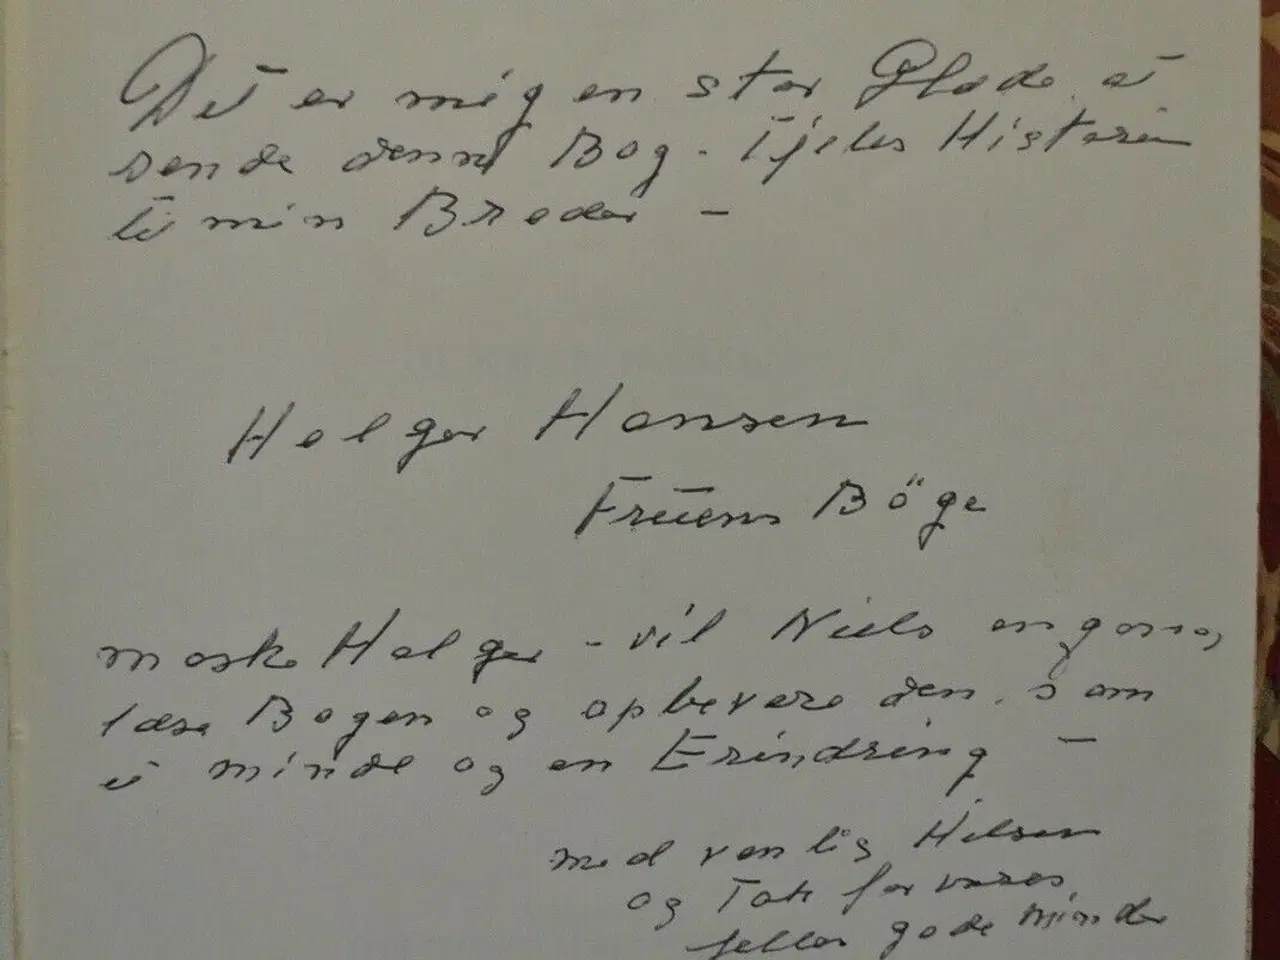 Det er mig en stor Glæde at
sende denne Bog - Tjeles Historie
til min Broder -
Holger Hansen
Fruens Böge
maske Holger - vil Niels engang,
læse Bogen og opbevare den, som
et minde og en Erindring -
med venlig Hilsen
og Tak for vores
felles gode minder